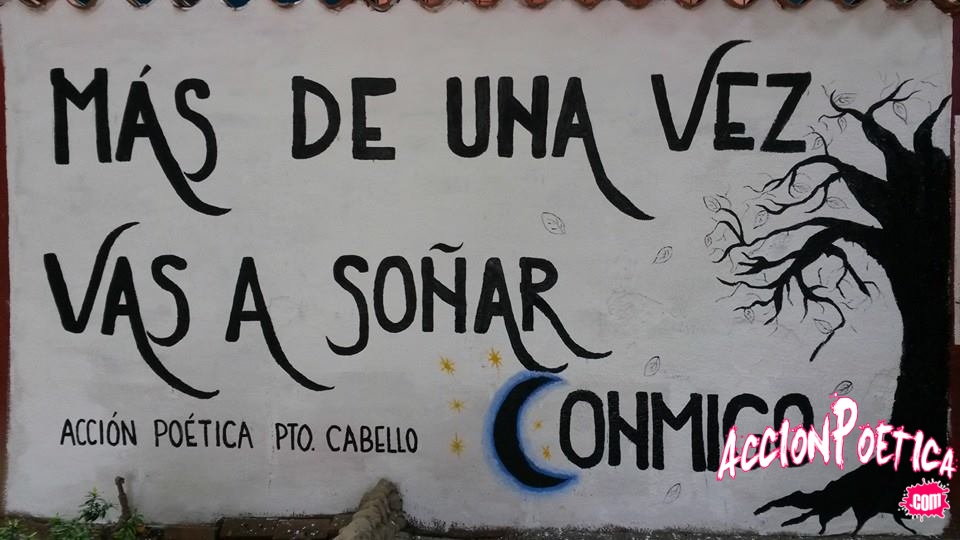 MÁS DE UNA VEZ
VAS A SOÑAR
CONMIGO
ACCIÓN POÉTICA PTO. CABELLO
ACCIONPOETICA
.com